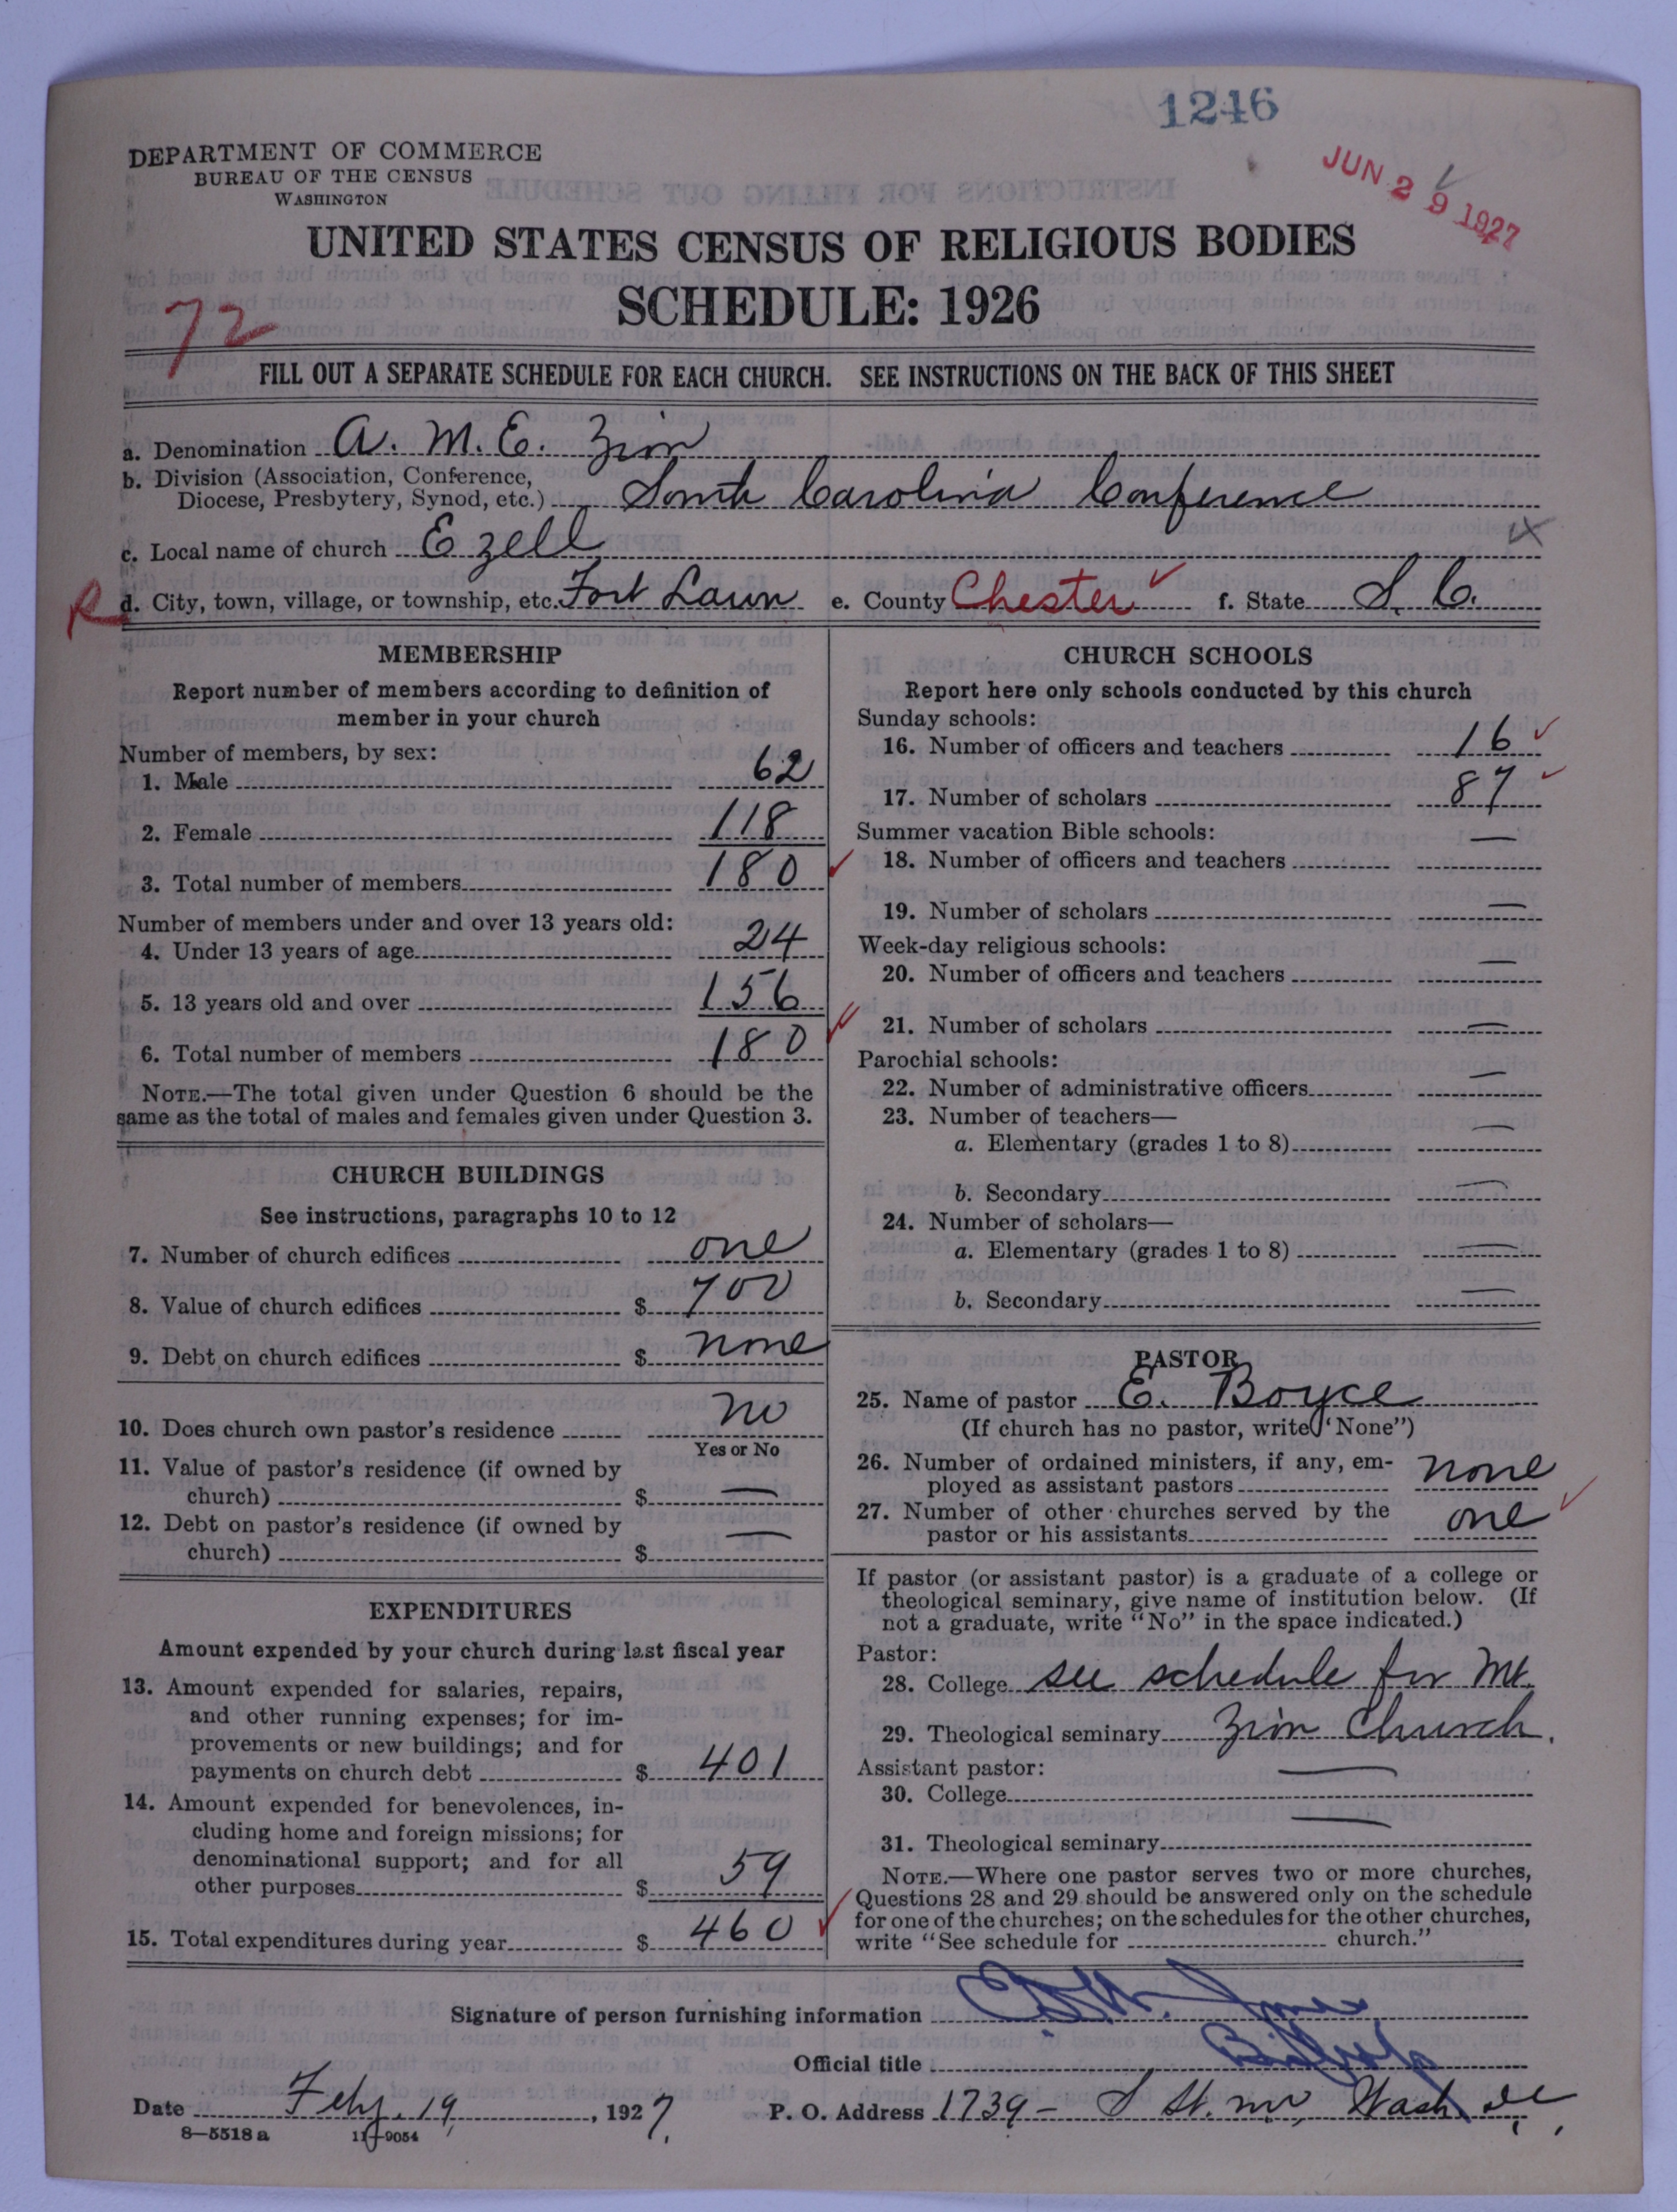 1246
JUN 29 1927
DEPARTMENT OF COMMERCE
BUREAU OF THE CENSUS
WASHINGTON
UNITED STATES CENSUS OF RELIGIOUS BODIES
SCHEDULE: 1926
72
FILL OUT A SEPARATE SCHEDULE FOR EACH CHURCH. SEE INSTRUCTIONS ON THE BACK OF THIS SHEET
a. Denomination A. M. E. Zion
b. Division (Association, Conference,
Diocese, Presbytery, Synod, etc.) South Carolina Conference
c. Local name of church Ezell
R d. City, town, village, or township, etc. Fort Lawn e. County Chester f. State S. C.
MEMBERSHIP
Report number of members according to definition of
member in your church
Number of members, by sex:
1. Male 62
2. Female 118
3. Total number of members 180
Number of members under and over 13 years old:
4. Under 13 years of age 24
5. 13 years old and over 156
6. Total number of members 180
NOTE.—The total given under Question 6 should be the
same as the total of males and females given under Question 3.
CHURCH BUILDINGS
See instructions, paragraphs 10 to 12
7. Number of church edifices one
8. Value of church edifices $ 700
9. Debt on church edifices $ none
10. Does church own pastor's residence no
Yes or No
11. Value of pastor's residence (if owned by
church) $ —
12. Debt on pastor's residence (if owned by
church) $ —
EXPENDITURES
Amount expended by your church during last fiscal year
13. Amount expended for salaries, repairs,
and other running expenses; for im-
provements or new buildings; and for
payments on church debt $ 401
14. Amount expended for benevolences, in-
cluding home and foreign missions; for
denominational support; and for all
other purposes $ 59
15. Total expenditures during year $ 460
CHURCH SCHOOLS
Report here only schools conducted by this church
Sunday schools:
16. Number of officers and teachers 16
17. Number of scholars 87
Summer vacation Bible schools:
18. Number of officers and teachers —
19. Number of scholars —
Week-day religious schools:
20. Number of officers and teachers —
21. Number of scholars —
Parochial schools:
22. Number of administrative officers —
23. Number of teachers—
a. Elementary (grades 1 to 8) —
b. Secondary —
24. Number of scholars—
a. Elementary (grades 1 to 8) —
b. Secondary —
PASTOR
25. Name of pastor E. Boyce
(If church has no pastor, write "None")
26. Number of ordained ministers, if any, em-
ployed as assistant pastors none
27. Number of other churches served by the
pastor or his assistants one
If pastor (or assistant pastor) is a graduate of a college or
theological seminary, give name of institution below. (If
not a graduate, write "No" in the space indicated.)
Pastor:
28. College see schedule for Mt.
29. Theological seminary Zion Church.
Assistant pastor:
30. College —
31. Theological seminary —
NOTE.—Where one pastor serves two or more churches,
Questions 28 and 29 should be answered only on the schedule
for one of the churches; on the schedules for the other churches,
write "See schedule for church."
Signature of person furnishing information
Official title Bishop
Date Feby. 19, 1927. P. O. Address 1739 - S St. nw, Wash, DC,
8—5518a 11—9054